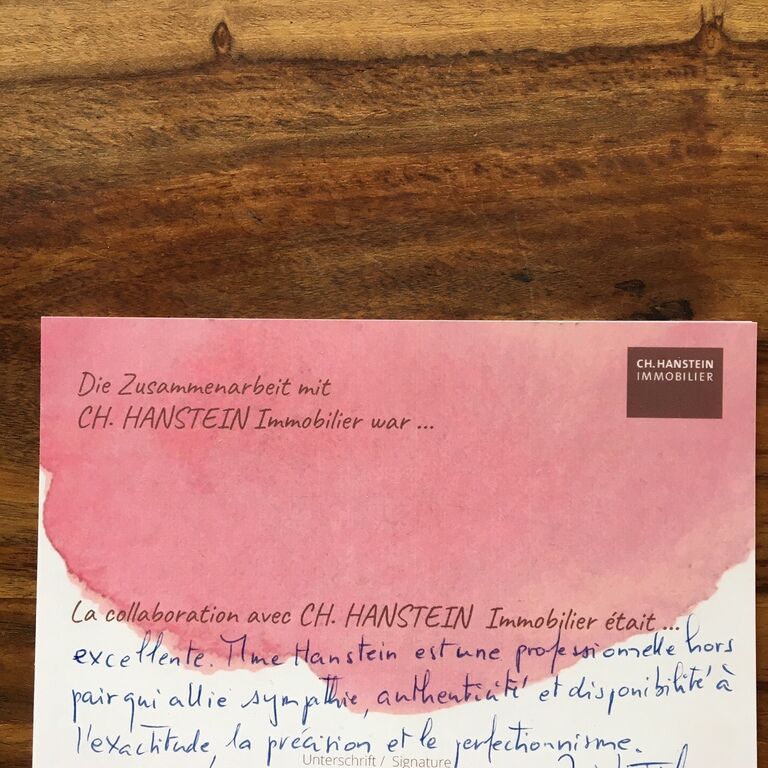 CH. HANSTEIN
IMMOBILIER
Die Zusammenarbeit mit
CH. HANSTEIN Immobilier war ...
La collaboration avec CH. HANSTEIN Immobilier était ...
excellente. Mme Hanstein est une professionnelle hors
pair qui allie sympathie, authenticité et disponibilité à
l'exactitude, la précision et le perfectionnisme.
Unterschrift / Signature